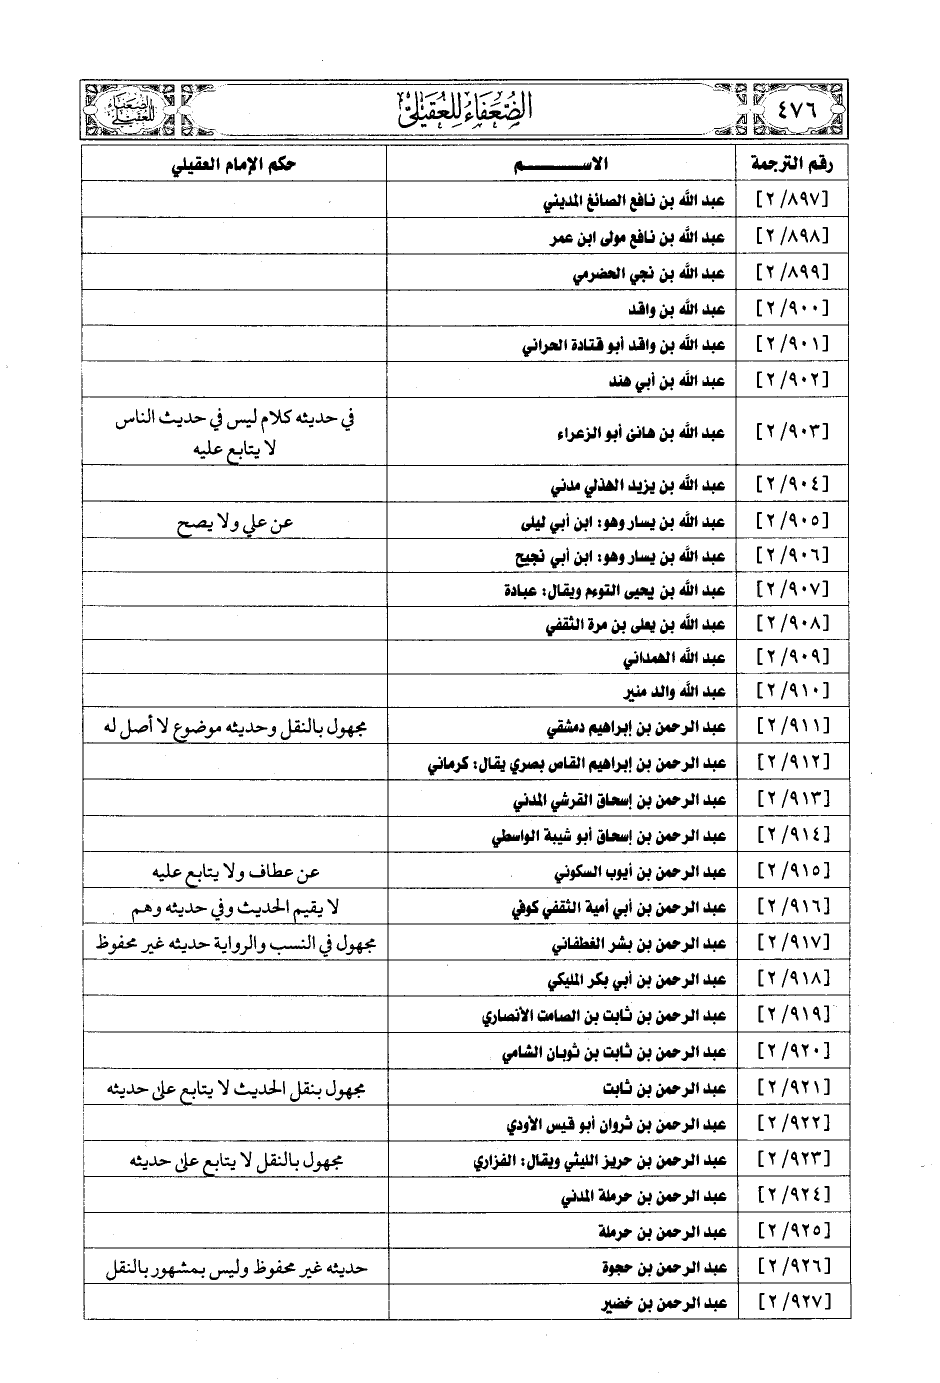 ٤٧٦
الضُّعَفَاءُ لِلْعُقَيْلِيِّ
الضعفاء للعقيلي
رقم الترجمة الاســـــــم حكم الإمام العقيلي
[٢/٨٩٧] عبد الله بن نافع الصائغ المديني
[٢/٨٩٨] عبد الله بن نافع مولى ابن عمر
[٢/٨٩٩] عبد الله بن نجي الحضرمي
[٢/٩٠٠] عبد الله بن واقد
[٢/٩٠١] عبد الله بن واقد أبو قتادة الحراني
[٢/٩٠٢] عبد الله بن أبي هند
[٢/٩٠٣] عبد الله بن هانئ أبو الزعراء في حديثه كلام ليس في حديث الناس
لا يتابع عليه
[٢/٩٠٤] عبد الله بن يزيد الهذلي مدني
[٢/٩٠٥] عبد الله بن يسار وهو: ابن أبي ليلى عن علي ولا يصح
[٢/٩٠٦] عبد الله بن يسار وهو: ابن أبي نجيح
[٢/٩٠٧] عبد الله بن يحيى التوءم ويقال: عبادة
[٢/٩٠٨] عبد الله بن يعلى بن مرة الثقفي
[٢/٩٠٩] عبد الله الهمداني
[٢/٩١٠] عبد الله والد منير
[٢/٩١١] عبد الرحمن بن إبراهيم دمشقي مجهول بالنقل وحديثه موضوع لا أصل له
[٢/٩١٢] عبد الرحمن بن إبراهيم القاص بصري يقال: كرماني
[٢/٩١٣] عبد الرحمن بن إسحاق القرشي المدني
[٢/٩١٤] عبد الرحمن بن إسحاق أبو شيبة الواسطي
[٢/٩١٥] عبد الرحمن بن أيوب السكوني عن عطاف ولا يتابع عليه
[٢/٩١٦] عبد الرحمن بن أبي أمية الثقفي كوفي لا يقيم الحديث وفي حديثه وهم
[٢/٩١٧] عبد الرحمن بن بشر الغطفاني مجهول في النسب والرواية حديثه غير محفوظ
[٢/٩١٨] عبد الرحمن بن أبي بكر المليكي
[٢/٩١٩] عبد الرحمن بن ثابت بن الصامت الأنصاري
[٢/٩٢٠] عبد الرحمن بن ثابت بن ثوبان الشامي
[٢/٩٢١] عبد الرحمن بن ثابت مجهول بنقل الحديث لا يتابع على حديثه
[٢/٩٢٢] عبد الرحمن بن ثروان أبو قيس الأودي
[٢/٩٢٣] عبد الرحمن بن حريز الليثي ويقال: الفزاري مجهول بالنقل لا يتابع على حديثه
[٢/٩٢٤] عبد الرحمن بن حرملة المدني
[٢/٩٢٥] عبد الرحمن بن حرملة
[٢/٩٢٦] عبد الرحمن بن حجوة حديثه غير محفوظ وليس بمشهور بالنقل
[٢/٩٢٧] عبد الرحمن بن خضير